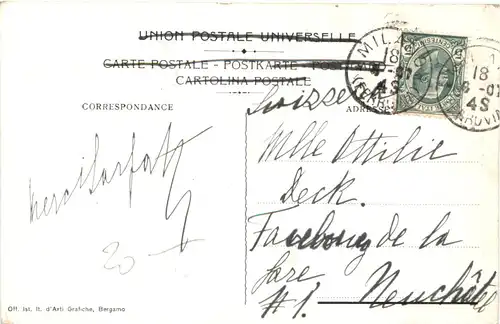 UNION POSTALE UNIVERSELLE
CARTE POSTALE - POSTKARTE - POST
CARTOLINA POSTALE
CORRESPONDANCE
ADRESSE
MILANO
18
6-07
4S
18
6-07
4S
Suizzera
Mlle Ottilie
Deck.
Faubourg de la
Gare
# 1. Neuchâtel
20
Off. Ist. It. d'Arti Grafiche, Bergamo